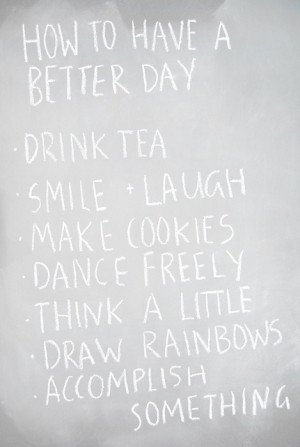 HOW TO HAVE A
BETTER DAY
· DRINK TEA
· SMILE + LAUGH
· MAKE COOKIES
· DANCE FREELY
· THINK A LITTLE
· DRAW RAINBOWS
· ACCOMPLISH
SOMETHING